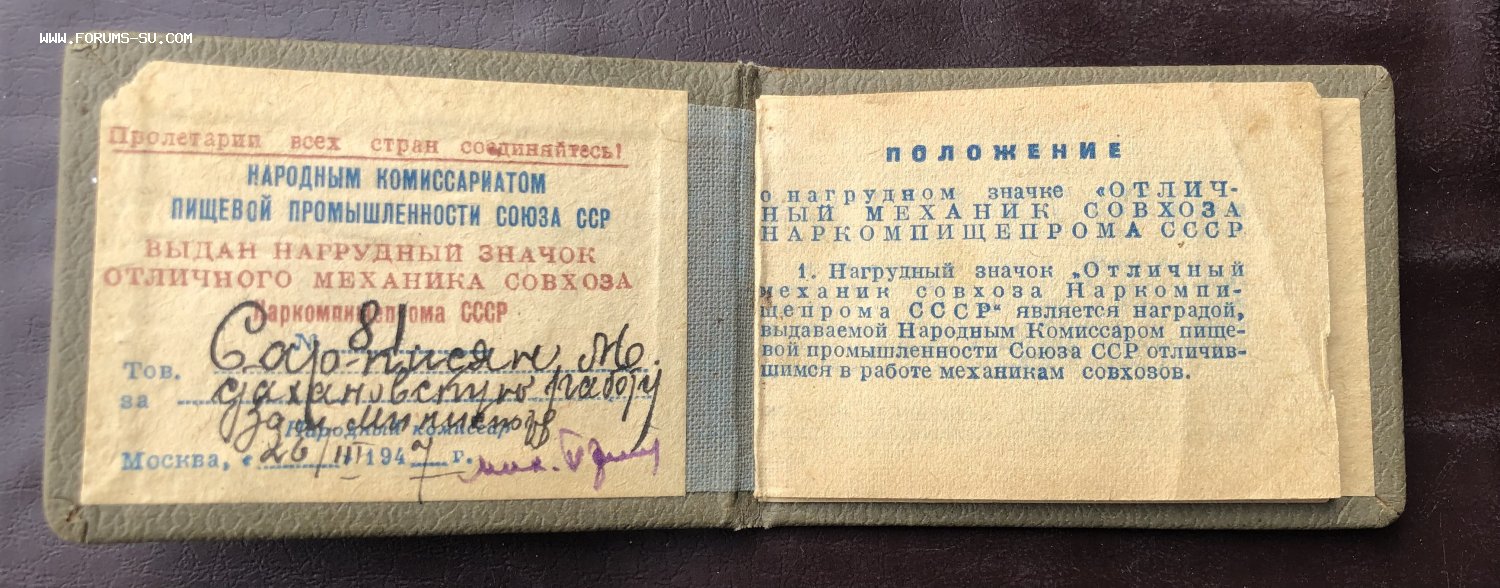 WWW.FORUMS-SU.COM
Пролетарии всех стран соединяйтесь!
НАРОДНЫМ КОМИССАРИАТОМ
ПИЩЕВОЙ ПРОМЫШЛЕННОСТИ СОЮЗА ССР
ВЫДАН НАГРУДНЫЙ ЗНАЧОК
ОТЛИЧНОГО МЕХАНИКА СОВХОЗА
Наркомпищепрома СССР
№ 81
Тов. М.
за стахановскую работу
Зам Министра
Народный комиссар
Москва, «26/III 1947 г.
ПОЛОЖЕНИЕ
о нагрудном значке «ОТЛИЧ-
НЫЙ МЕХАНИК СОВХОЗА
НАРКОМПИЩЕПРОМА СССР
1. Нагрудный значок „Отличный
механик совхоза Наркомпи-
щепрома СССР“ является наградой,
выдаваемой Народным Комиссаром пище-
вой промышленности Союза ССР отличив-
шимся в работе механикам совхозов.